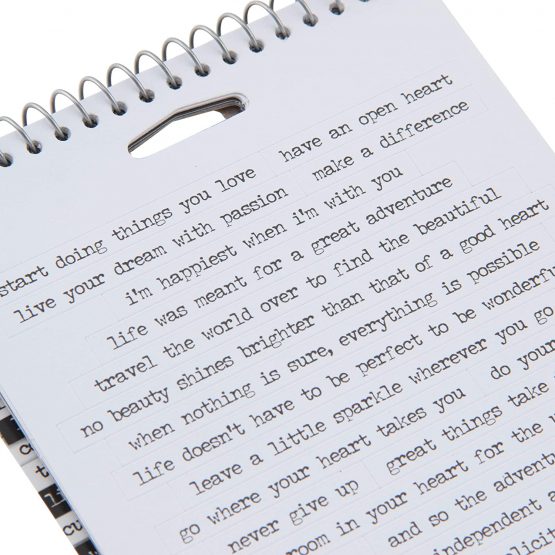 start doing things you love have an open heart
live your dream with passion make a difference
i'm happiest when i'm with you
life was meant for a great adventure
travel the world over to find the beautiful
no beauty shines brighter than that of a good heart
when nothing is sure, everything is possible
life doesn't have to be perfect to be wonderfu
leave a little sparkle wherever you go
go where your heart takes you do your
never give up great things take
room in your heart for the
and so the adventu
independent